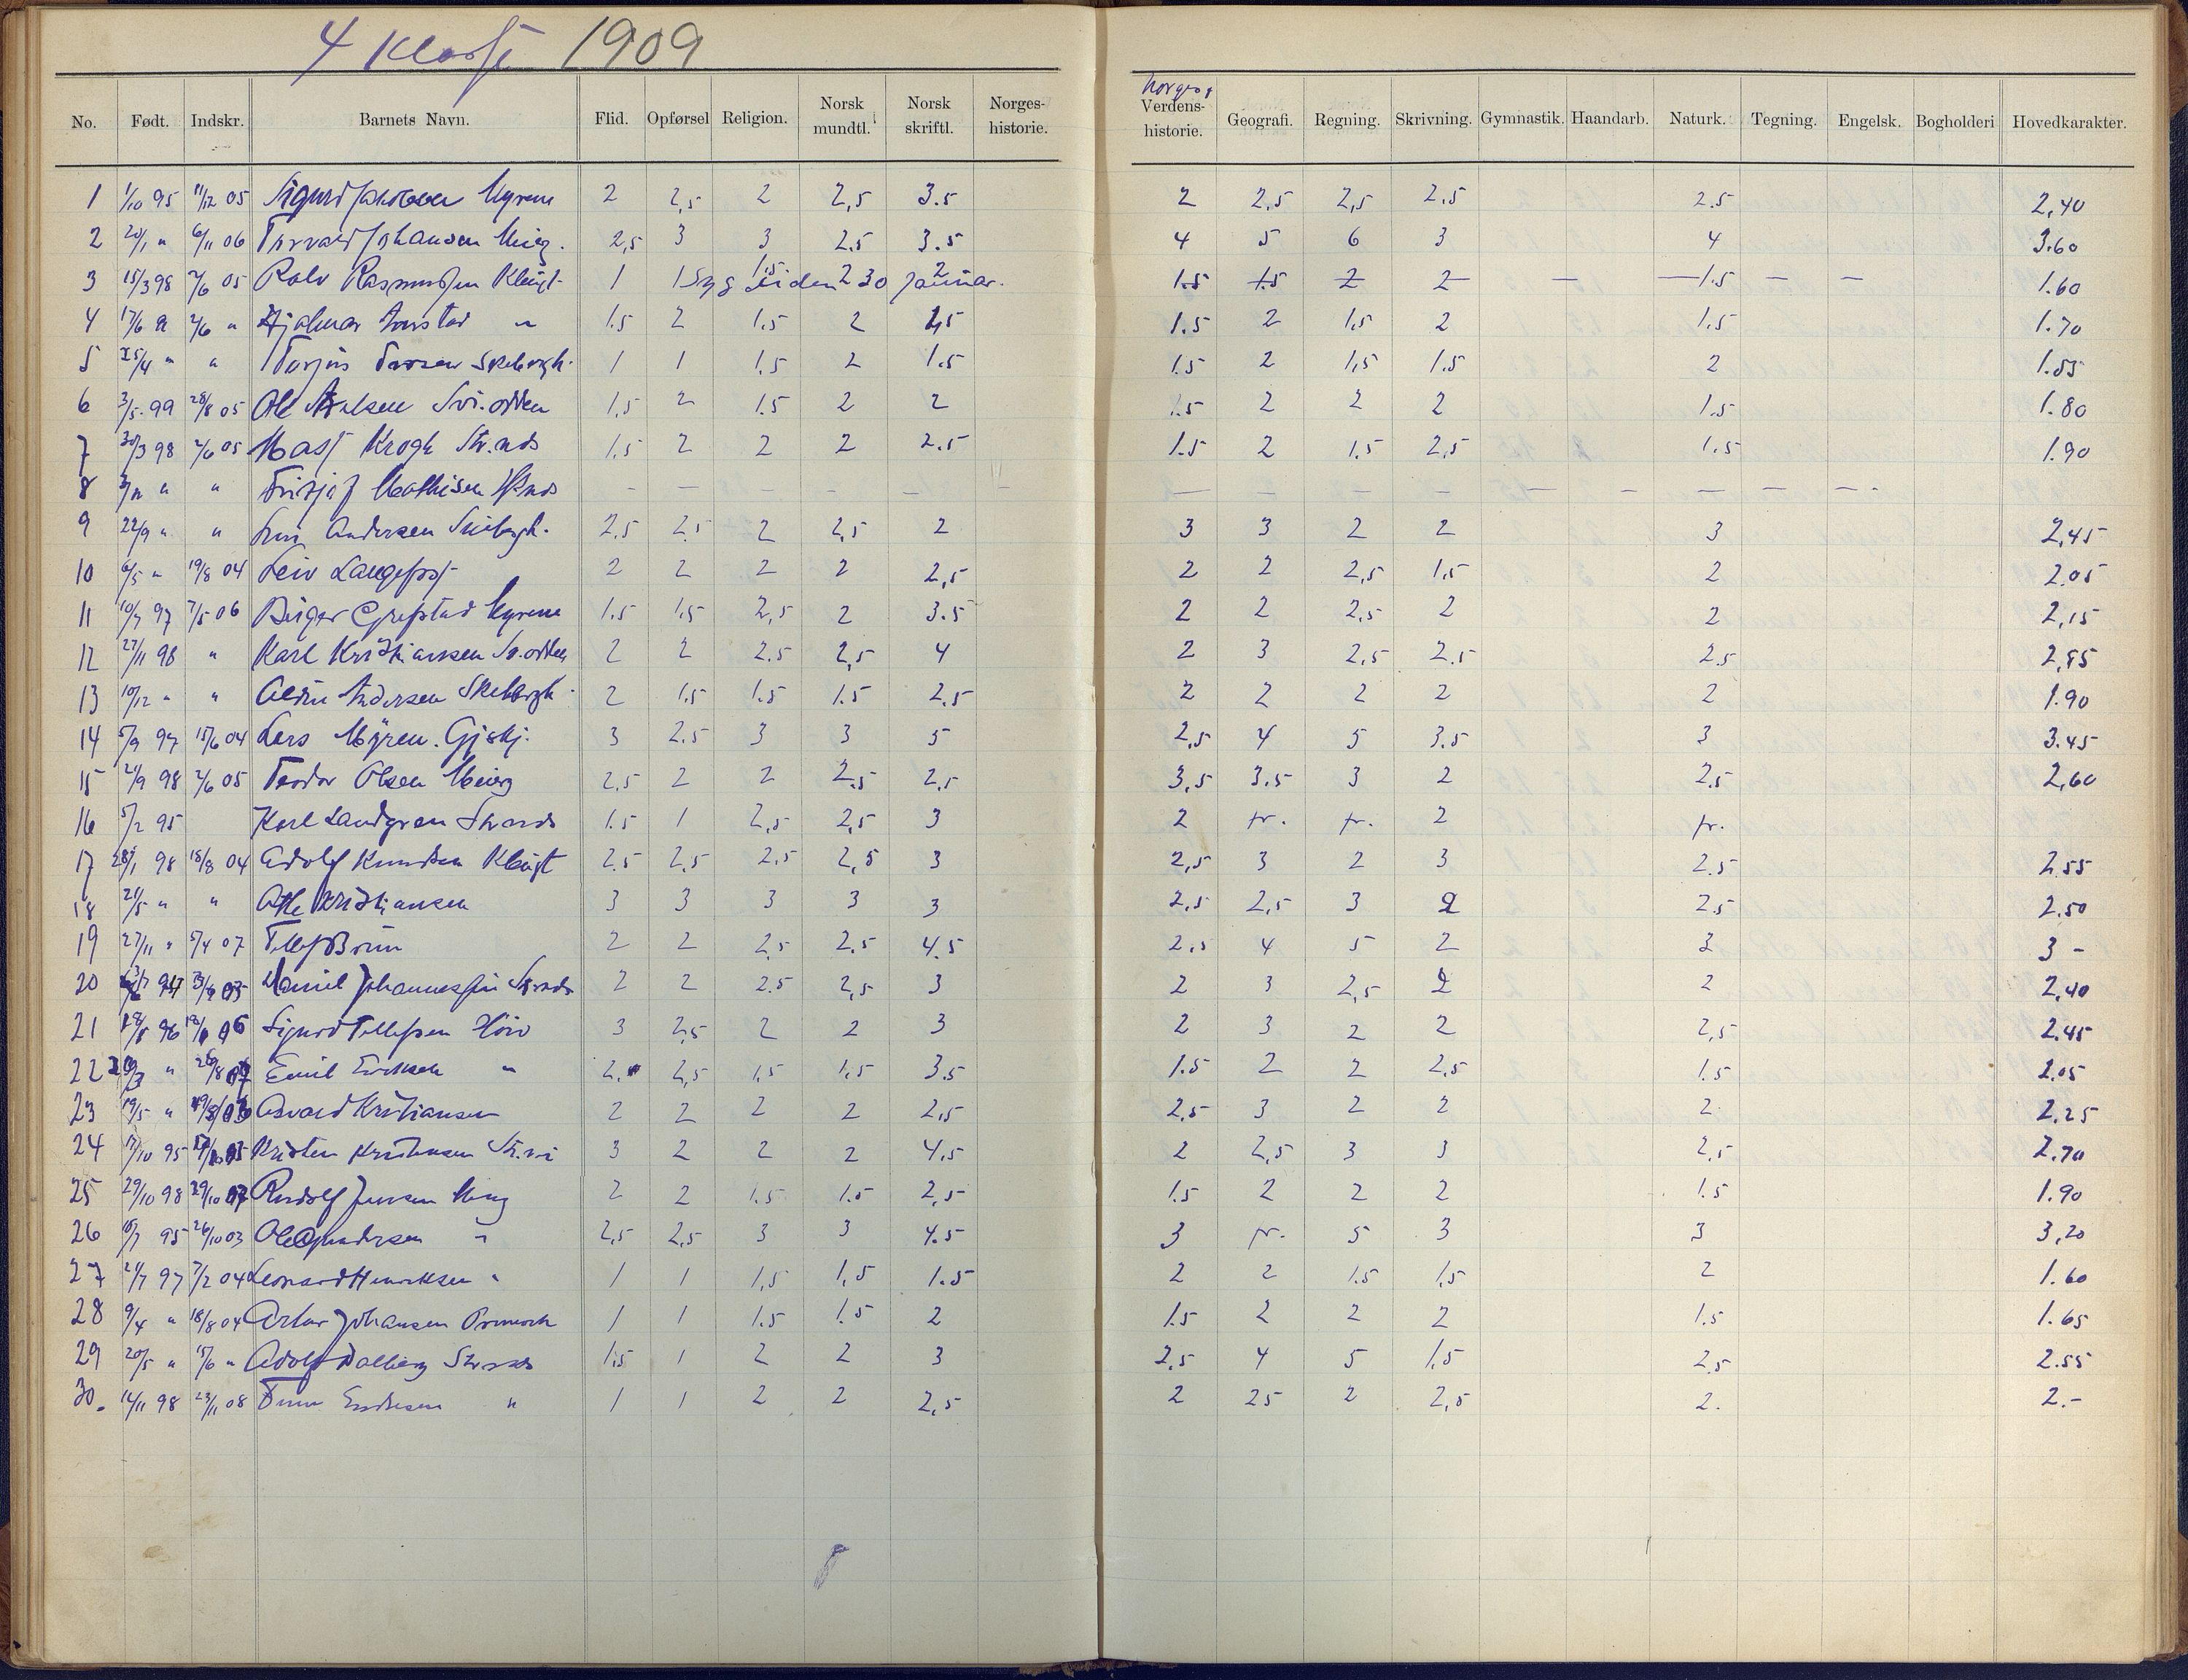 4 Klasse 1909
No. Født. Indskr. Barnets Navn. Flid. Opførsel Religion. Norsk mundtl. Norsk skriftl. Norges-historie. Norges og Verdens-historie. Geografi. Regning. Skrivning. Gymnastik. Haandarb. Naturk. Tegning. Engelsk. Bogholderi Hovedkarakter.
1 1/10 95 11/12 05 Sigurd Jakobsen Myrene 2 2,5 2 2,5 3.5 2 2,5 2,5 2,5 2.5 2,40
2 20/1 " 6/11 06 Torvald Johansen 2,5 3 3 2.5 3.5 4 5 6 3 4 3.60
3 15/3 98 2/6 05 Rolv Rasmussen 1 1 Syg siden 30 januar. 1.5 2 2 1.5 1.5 2 2 — — 1.5 — — 1.60
4 17/6 " 2/6 " Hjalmar " 1.5 2 1.5 2 2,5 1.5 2 1,5 2 1.5 1.70
5 25/4 " " Torjus 1 1 1.5 2 1.5 1.5 2 1,5 1.5 2 1.55
6 3/5 99 28/8 05 Ole 1,5 2 1.5 2 2 1.5 2 2 2 1.5 1.80
7 30/3 98 2/6 05 Krogh Str.nds 1.5 2 2 2 2.5 1.5 2 1.5 2,5 1.5 1.90
8 " " Fritjof Mathisen — — — — — — — — — — — — — — — —
9 22/9 " " Andersen 2,5 2.5 2 2,5 2 3 3 2 2 3 2,45
10 6/5 " 19/8 04 Leiv Langefoss 2 2 2 2 2,5 2 2 2,5 1,5 2 2.05
11 10/7 97 7/5 06 Birger Grefstad Myrene 1.5 1,5 2,5 2 3.5 2 2 2,5 2 2 2,15
12 27/11 98 " Karl Kristiansen 2 2 2.5 2,5 4 2 3 2,5 2.5 2.5 2,55
13 10/12 " " Andersen 2 1.5 1.5 1.5 2.5 2 2 2 2 2 1.90
14 5/9 97 15/6 04 Lars Myren. 3 2.5 3 3 5 2,5 4 5 3.5 3 3.45
15 21/9 98 2/6 05 Teodor Olsen 2,5 2 2 2.5 2,5 3,5 3.5 3 2 2.5 2,60
16 5/2 95 Karl Landgren Strands 1.5 1 2,5 2,5 3 2 fr. fr. 2 fr.
17 28/1 98 18/8 04 Adolf Knudsen 2.5 2,5 2.5 2,5 3 2,5 3 2 3 2.5 2.55
18 21/5 " " Atle Kristiansen 3 3 3 3 3 2,5 2,5 3 2 2.5 2.50
19 27/11 " 5/4 07 Tellef Brun 2 2 2,5 2.5 4.5 2.5 4 5 2 3 3 -
20 Daniel Johannessen Strnds 2 2 2.5 2,5 3 2 3 2,5 2 2 2,40
21 Sigurd Tellefsen 3 2,5 2 2 3 2 3 2 2 2,5 2.45
22 " Emil Eriksen " 2. 2,5 1,5 1.5 3.5 1.5 2 2 2,5 1.5 2.05
23 19/5 " Osvald Kristiansen 2 2 2 2 2,5 2,5 3 2 2 2 2.25
24 17/10 95 Kristen Kristensen 3 2 2 2 4,5 2 2,5 3 3 2,5 2.70
25 29/10 98 29/10 07 Rudolf Jensen 2 2 1.5 1.5 2,5 1.5 2 2 2 1.5 1.90
26 95 26/10 03 Ole Gundersen " 2,5 2,5 3 3 4.5 3 fr. 5 3 3 3,20
27 21/7 97 7/2 04 Leonard Henriksen " 1 1 1,5 1,5 1.5 2 2 1.5 1,5 2 1.60
28 9/4 " 18/8 04 Artur Johansen 1 1 1.5 1.5 2 1.5 2 2 2 1.5 1.65
29 20/5 " 15/6 " Adolf Dalberg Strands 1.5 1 2 2 3 2,5 4 5 1,5 2,5 2.55
30. 14/11 98 23/11 08 " 1 1 2 2 2,5 2 25 2 2,5 2. 2.-